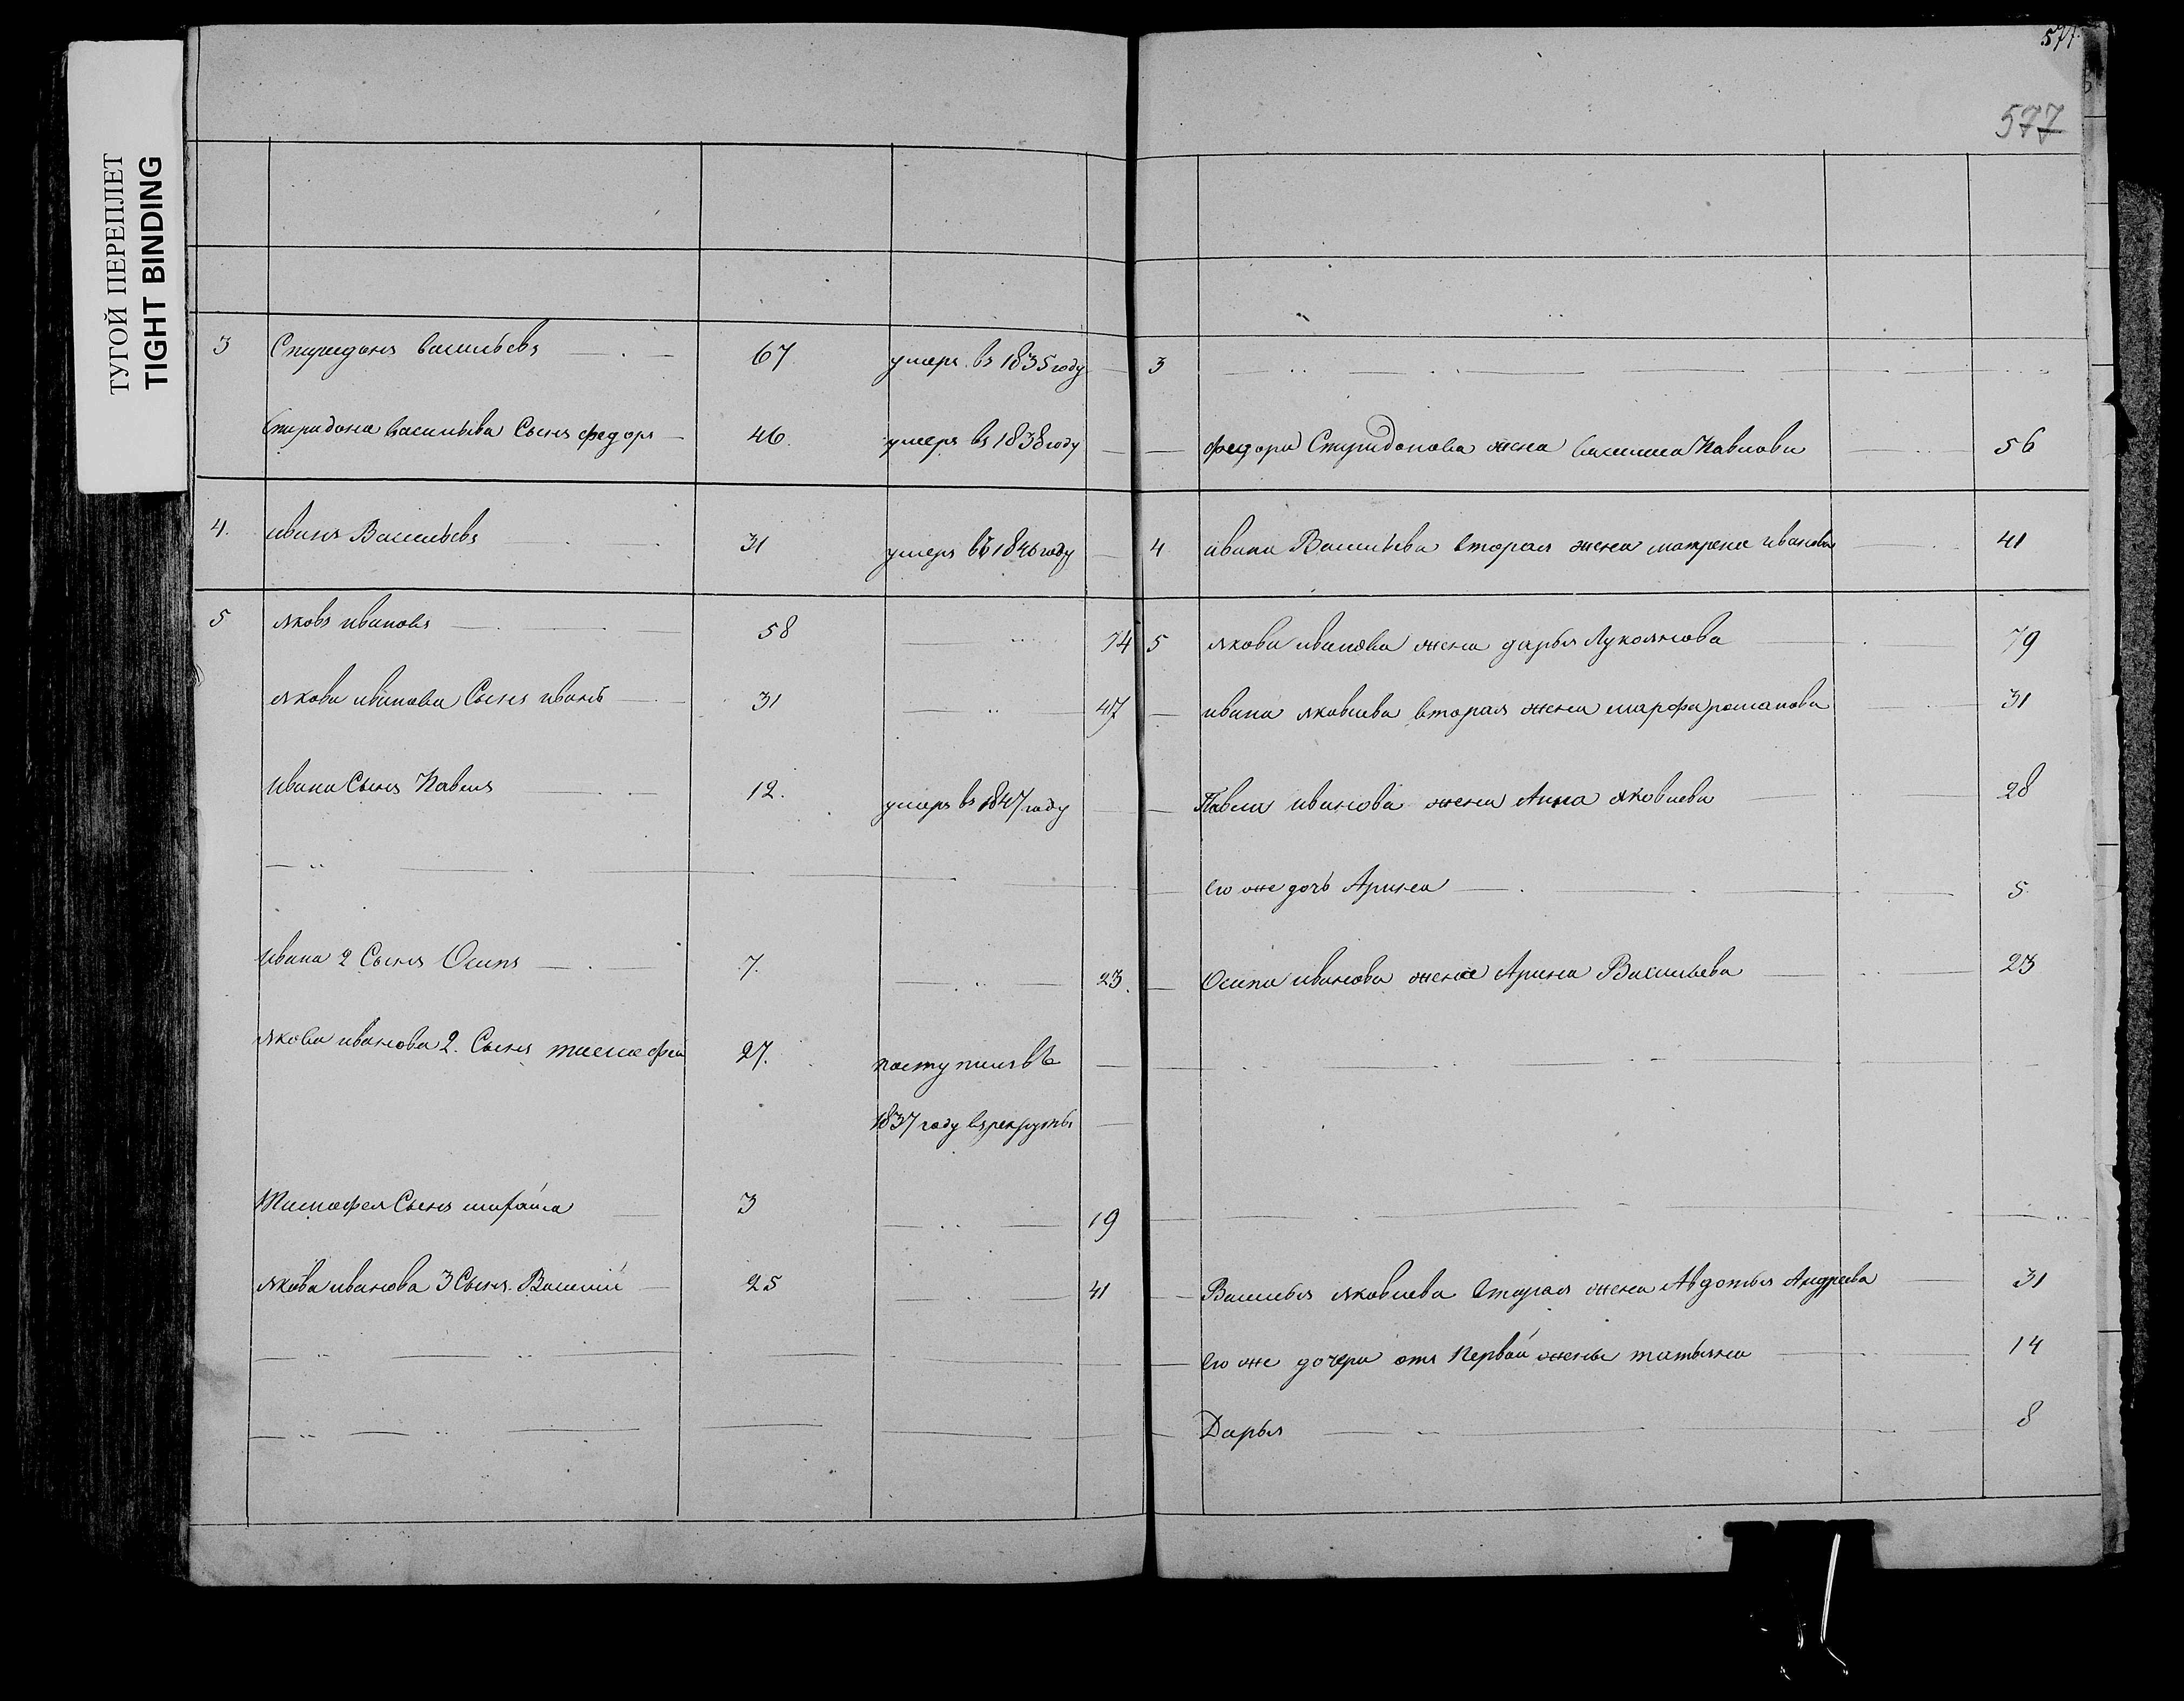 ТУГОЙ ПЕРЕПЛЕТ
TIGHT BINDING
577
577
3 Спиридонъ васильевъ 67 умеръ въ 1835 году
Спиридона васильева Сынъ федоръ 46. умеръ въ 1838 году
4. иванъ Васильевъ 31 умеръ въ 1846 году
5 яковъ ивановъ 58 74
якова иванова Сынъ иванъ 31 47
ивана Сынъ Павелъ 12. умеръ въ 1847 году
ивана 2 Сынъ Осипъ 7. 23.
якова иванова 2. Сынъ тимофей 27. поступилъ въ
1837 году въ рекруты
Тимофея Сынъ 3 19
якова иванова 3 Сынъ Василий 25 41
3
федора Спиридонова жена Павлова 56
4 ивана Васильева вторая жена матрена иванова 41
5 якова иванова жена дарья Лукоянова 79
ивана яковлева вторая жена марфа романова 31
Павла иванова жена Анна яковлева 28
его же дочь Арина 5
Осипа иванова жена Арина Васильева 23
Василья яковлева вторая жена Авдотья Андреева 31
его же дочери отъ первой жены татьяна 14
Дарья 8